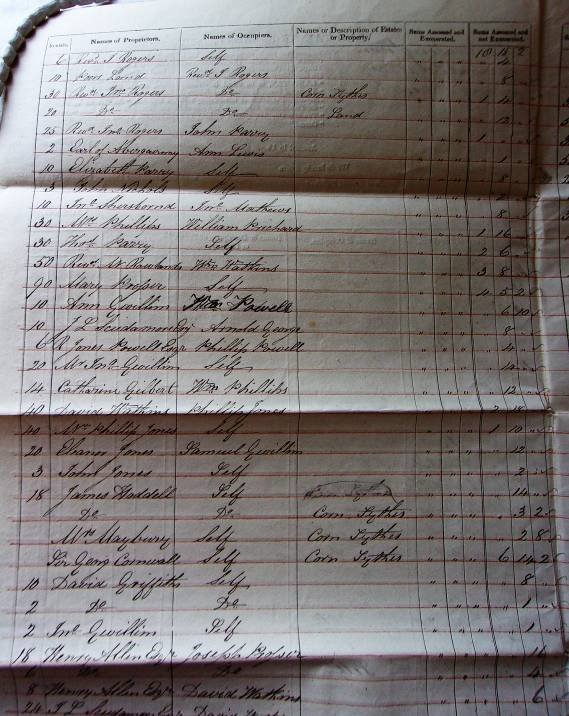 Names of Proprietors. Names of Occupiers. Names or Description of Estates or Property. Sums Assessed and Exonerated. Sums Assessed and not Exonerated.
6 Revd. J Rogers Self 4
10 Poor Land Revd. J Rogers 8
30 Revd. Jno. Rogers Do Corn Tythes 1 4
20 Do Do Land
25 Revd. Jno. Rogers John Parry 1
2 Earl of Abergavenny Ann Lewis 1
10 Elizabeth Parry Self 8
3 John Nichols Self 2
10 Jno. Sherbornd Jno. Mathews 8
30 Mrs Phillips William Prichard 1 16
30 Thos. Parry Self 2 6
50 Revd. W Rowlands Wm. Watkins 3 8
90 Mary Prosser Self 4 5 2
10 Ann Gwillim Powell 6 10
10 J L Scudamore Esq Arnold George 8
6 R Jones Powell Esqr Phillip Powell 4
20 Mr. Jno. Gwillim Self 14
14 Catharine Gilbert Wm Phillips 12
40 David Watkins Phillip Jones 2
40 Mr. Phillip Jones Self 1 10
20 Eleanor Jones Samuel Gwillim 12
3 John Jones Self 2
18 James Waddell Self 14
Do Do Corn Tythes 3 2
Mrs Maybury Self Corn Tythes 2 8
Sir George Cornwall Self Corn Tythes 6 14 2
10 David Griffiths Self 8
2 Do Do 1
2 Jno. Gwillim Self 1
18 Henry Allen Esqr. Joseph Prosser 14
6 Do Do 4
8 Henry Allen Esqr David Watkins 6
24 J L Scudamore David